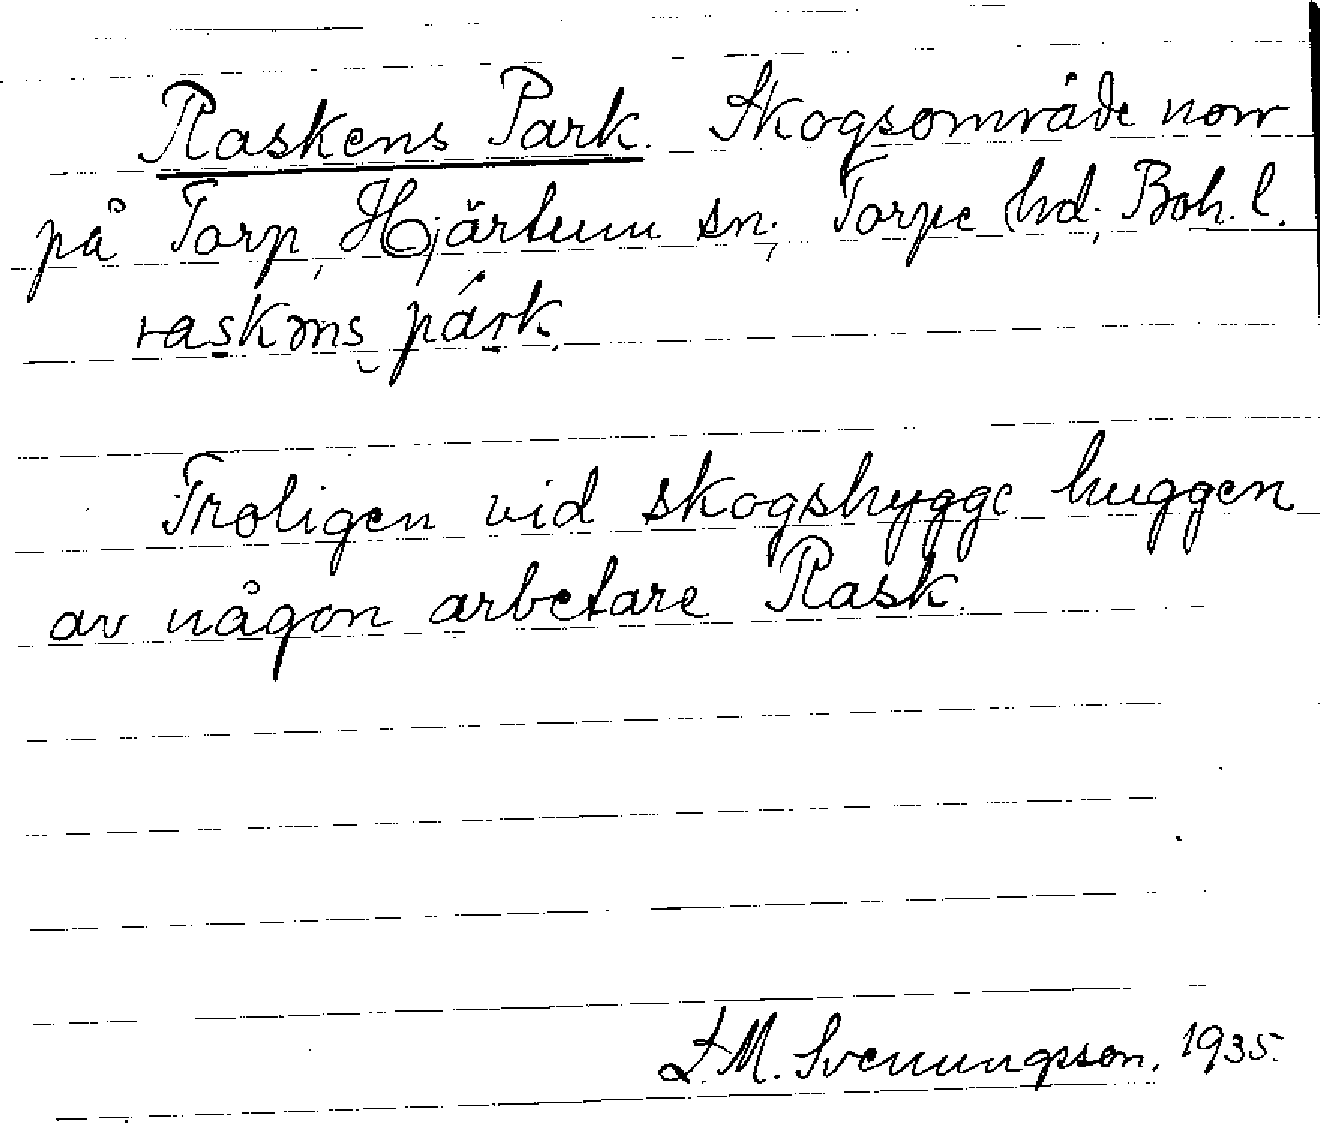 Raskens Park. Skogsområde norr
på Torp, Hjärtum sn; Torpe hd; Boh. l.
raskəns párk.
Troligen vid skogshygge huggen
av någon arbetare Rask.
S. M. Svenungsson. 1935.